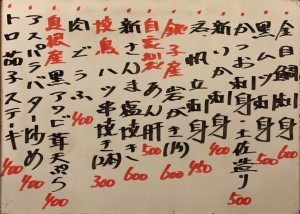 金目鯛刺身 600
黒ムツ刺身
かつお刺身 土佐造り 500
新いか刺身
帆立刺身
銚子産 岩がき 600
自家製 あん肝 500
新さんま塩焼き 600
焼鳥 ハツ串焼き(2本) 300
肉どうふ 400
島根産 黒アワビ茸天ぷら 400
アスパラバター炒め 400
トロ茄子ステーキ 400